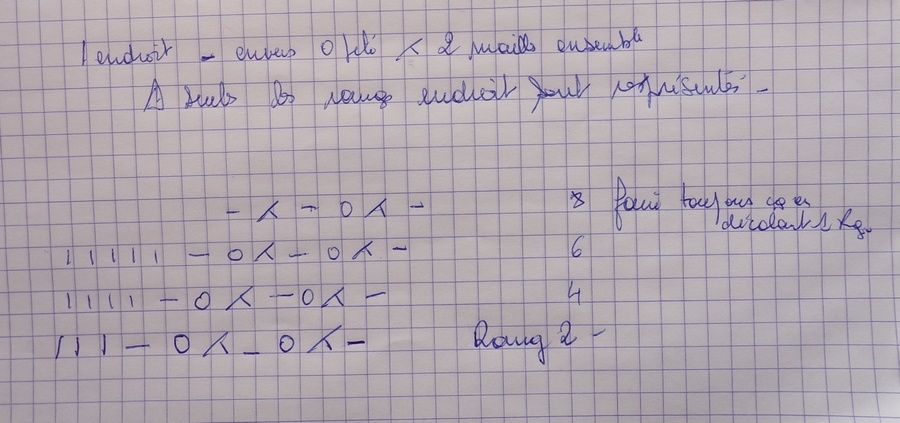 1 endroit - envers O jeté ⋌ 2 mailles ensemble
⚠ seuls les rangs endroit sont représentés -
- ⋌ - O ⋌ - 8 faire toujours ça en
décalant 1 Rg.
| | | | | - O ⋌ - O ⋌ - 6
| | | | - O ⋌ - O ⋌ - 4
| | | - O ⋌ - O ⋌ - Rang 2 -